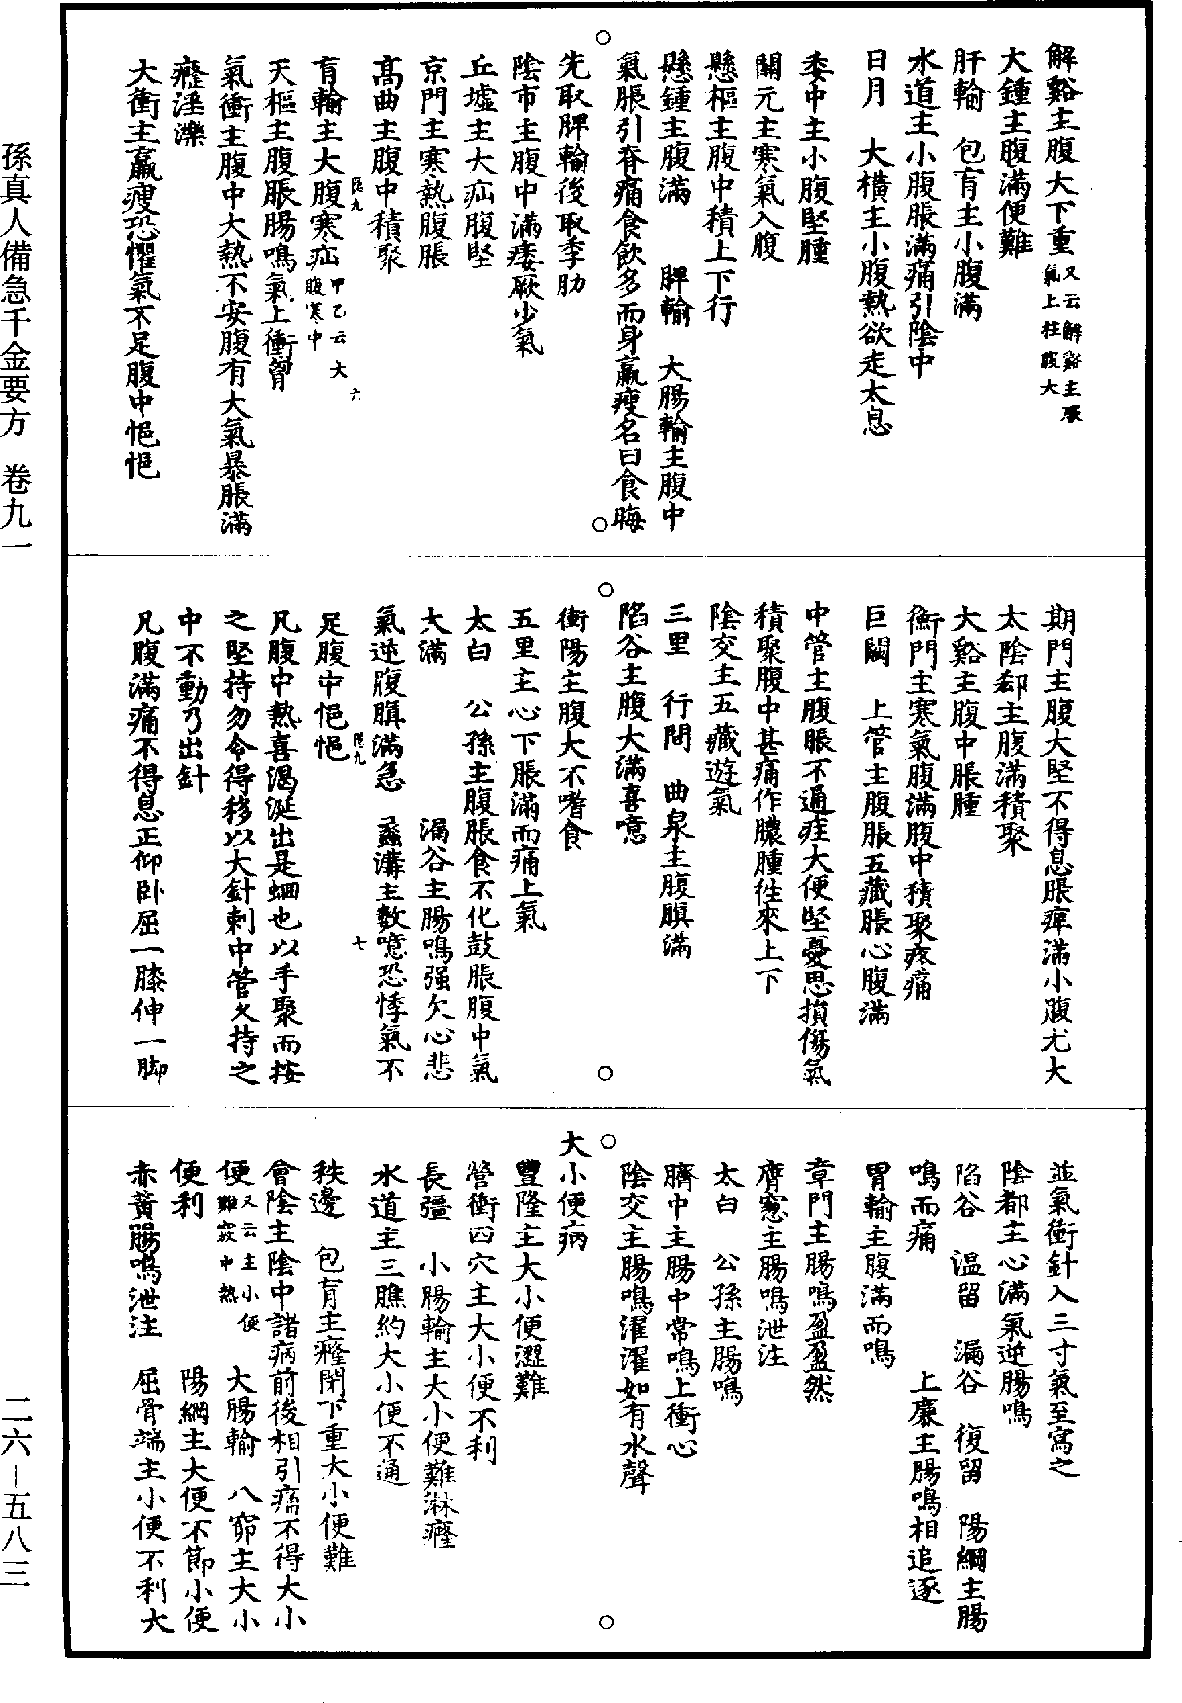 孫真人備急千金要方　卷九一
解谿主腹大下重又云解谿主脹氣上柱腹大
大鍾主腹滿便難
肝輸　包肓主小腹滿
水道主小腹脹滿痛引陰中
日月　大橫主小腹熱欲走太息
委中主小腹堅腫
關元主寒氣入腹
懸樞主腹中積上下行
懸鍾主腹滿　脾輸　大腸輸主腹中
氣脹引脊痛食飲多而身羸瘦名曰食晦
先取脾輸後取季肋
陰市主腹中滿痿厥少氣
丘墟主大疝腹堅
京門主寒熱腹脹
高曲主腹中積聚
肓輸主大腹寒疝甲乙云大腹寒中
天樞主腹脹腸鳴氣上衝胷
氣衝主腹中大熱不安腹有大氣暴脹滿
癃淫濼
大衝主羸瘦恐懼氣不足腹中悒悒
期門主腹大堅不得息脹痺滿小腹尤大
太陰郄主腹滿積聚
大谿主腹中脹腫
衝門主寒氣腹滿腹中積聚疼痛
巨闕　上管主腹脹五藏脹心腹滿
中管主腹脹不通疰大便堅憂思損傷氣
積聚腹中甚痛作膿腫往來上下
陰交主五藏遊氣
三里　行間　曲泉主腹䐜滿
陷谷主腹大滿喜噫
衝陽主腹大不嗜食
五里主心下脹滿而痛上氣
太白　公孫主腹脹食不化鼓脹腹中氣
大滿　漏谷主腸鳴强欠心悲
氣逆腹䐜滿急　蠡溝主數噫恐悸氣不
足腹中悒悒
凡腹中熱喜渴涎出是蛔也以手聚而按
之堅持勿令得移以大針刺中管久持之
中不動乃出針
凡腹滿痛不得息正仰卧屈一膝伸一脚
並氣衝針入三寸氣至寫之
陰都主心滿氣逆腸鳴
陷谷　溫留　漏谷　復留　陽綱主腸
鳴而痛　上廉主腸鳴相追逐
胃輸主腹滿而鳴
章門主腸鳴盈盈然
膺窻主腸鳴泄注
太白　公孫主腸鳴
臍中主腸中常鳴上衝心
陰交主腸鳴濯濯如有水聲
大小便病
豐隆主大小便澀難
營衝四穴主大小便不利
長彊　小腸輸主大小便難淋癃
水道主三膲約大小便不通
秩邊　包肓主癃閉下重大小便難
會陰主陰中諸病前後相引痛不得大小
便又云主小便難竅中熱　大腸輸　八窌主大小
便利　陽綱主大便不節小便
赤黃腸鳴泄注　屈骨端主小便不利大
二六－五八三